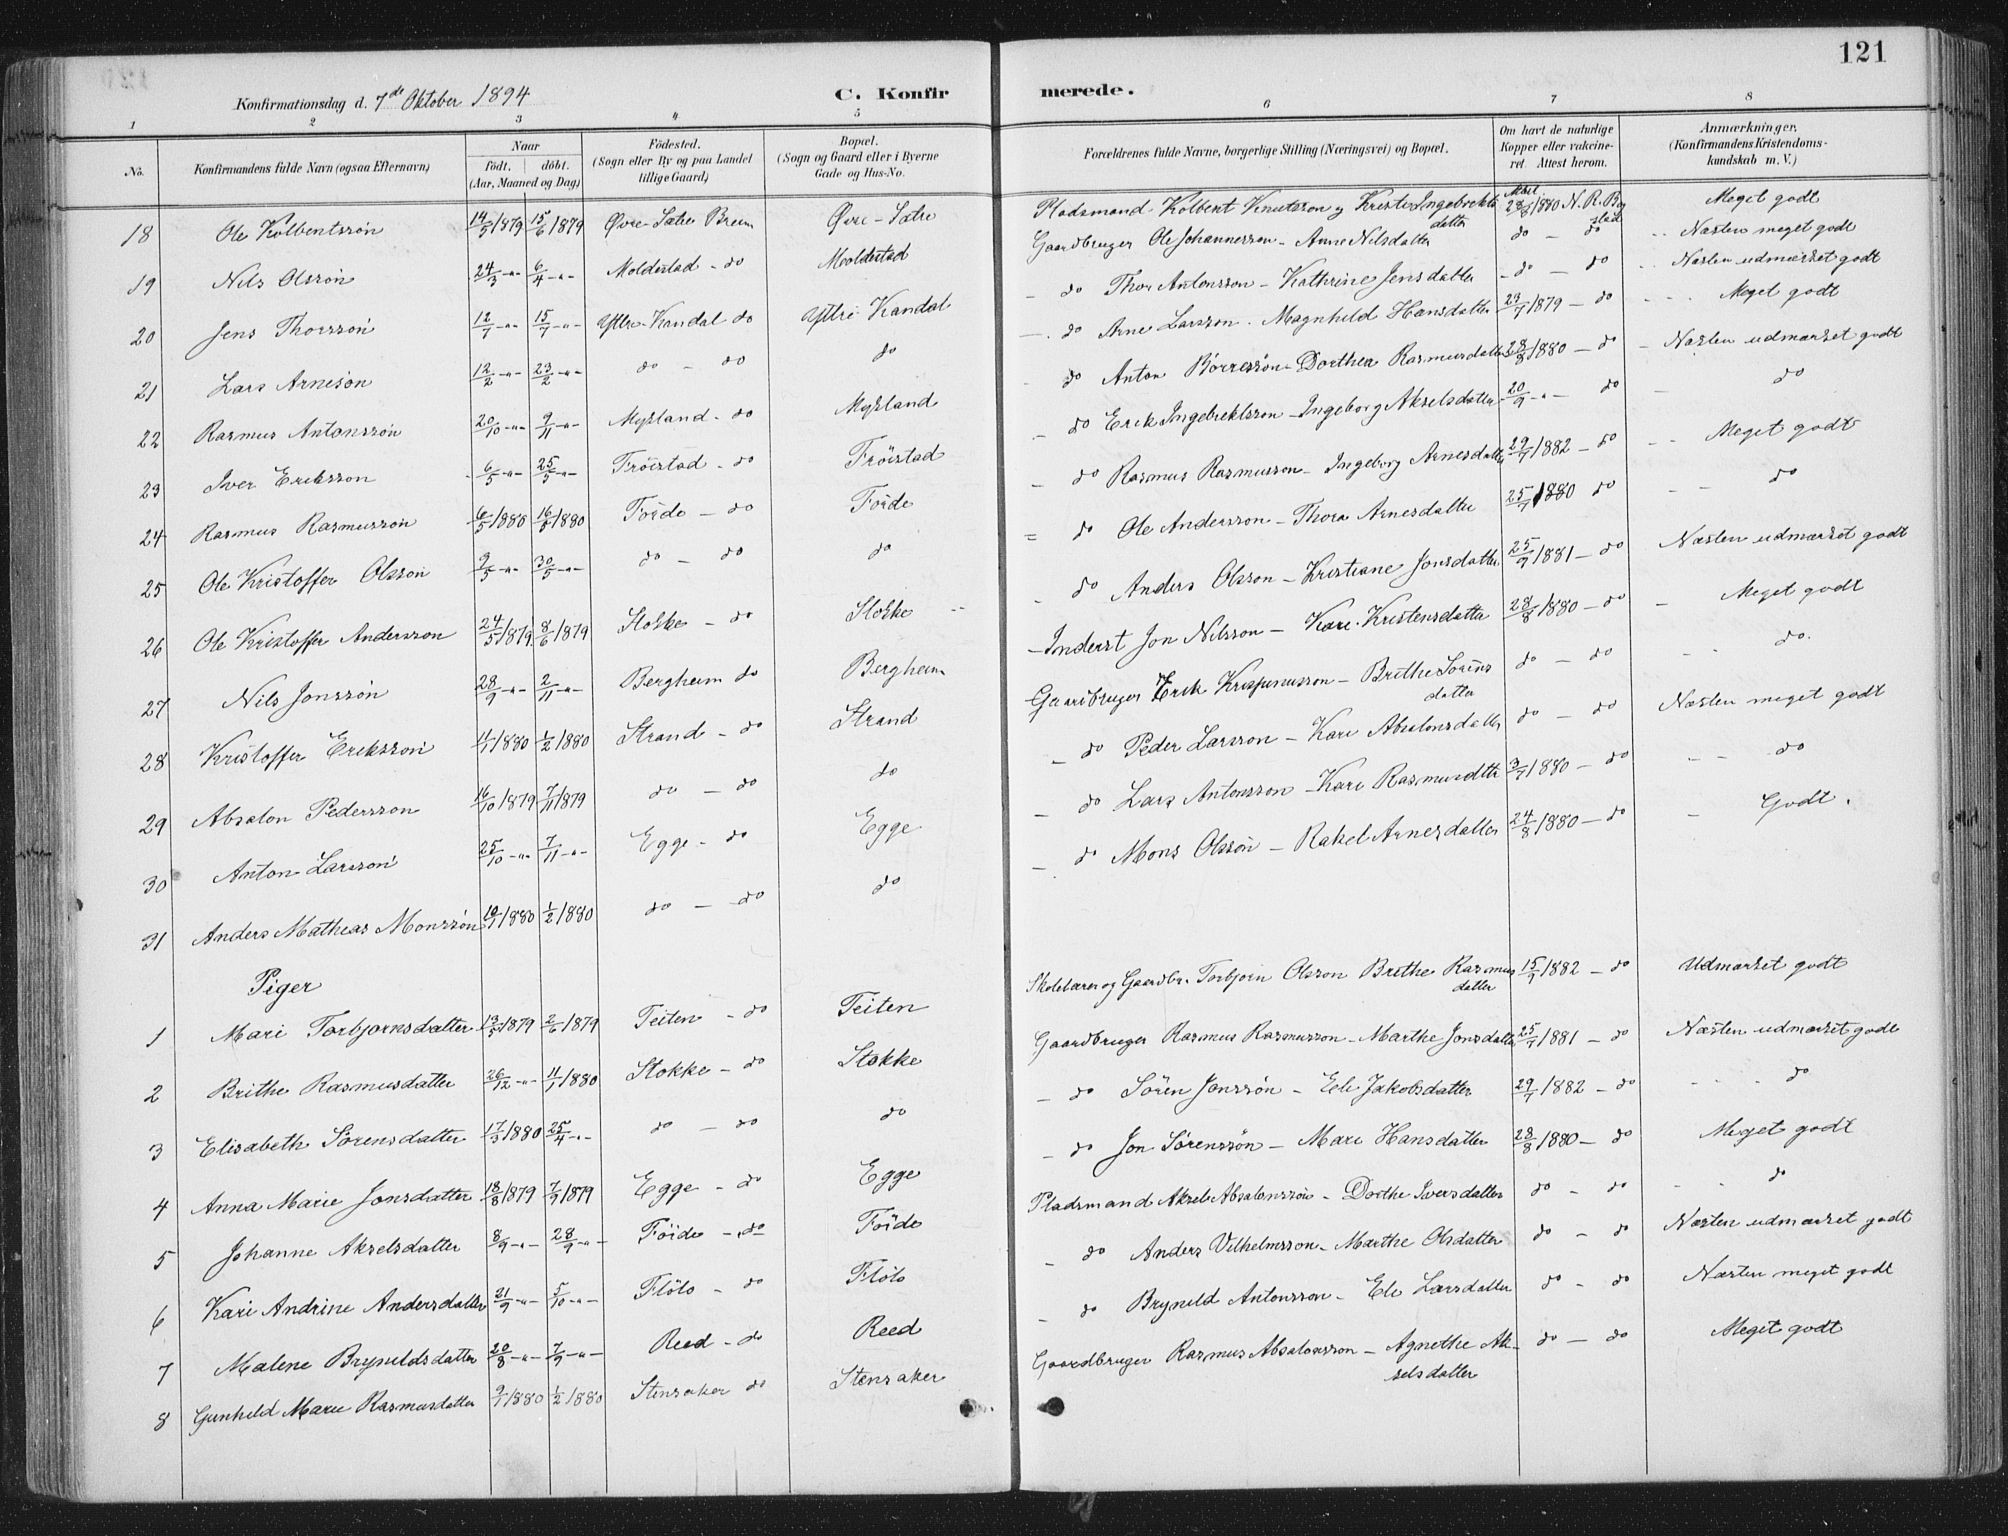 121
Konfirmationsdag d. 7de Oktober 1894
C. Konfirmerede.
1 2 3 4 5 6 7 8
No. Konfirmandens fulde Navn (ogsaa Efternavn) Naar födt. döbt. (Aar, Maaned og Dag) Födested. (Sogn eller By og paa Landet tillige Gaard) Bopæl. (Sogn og Gaard eller i Byerne Gade og Hus-No. Forældrenes fulde Navne, borgerlige Stilling (Næringsvei) og Bopæl. Om havt de naturlige Kopper eller vaccineret. Attest herom. Anmærkninger. (Konfirmandens Kristendomskundskab m. V.)
18 Ole Kolbentssön 14/5 1879 15/6 1879 Øvre-Sætre Breim Øvre-Sætre Pladsmand Kolbent Knutsson og Kristi Ingebrektsdatter 28/8 1880 N. R. Meget godt
19 Nils Olsson 24/3 -"- 6/4 -"- Moldestad - do Moldestad Gaardbruger Ole Johannesson - Anne Nilsdatter do - do Næsten meget godt
20 Jens Thorsson 12/7 -"- 15/7 -"- Yttre-Kandal do Yttre Kandal - do Thor Antonsson - Kathrine Jensdatter - do - do Næsten udmærket godt
21 Lars Arneson 12/2 -"- 23/2 -"- do - do do - do Arne Larsson - Magnhild Hansdatter 23/7 1879 - do Meget godt
22 Rasmus Antonsson 20/10 -"- 9/11 -"- Mykland - do Mykland - do Anton Börresson - Dorthea Rasmusdatter 28/8 1880 - do Næsten udmærket godt
23 Iver Eriksson 6/5 -"- 25/5 -"- Fröistad - do Fröistad - do Erik Ingebrektsson - Ingeborg Akselsdatter 20/9 -"- do do
24 Rasmus Rasmusson 6/5 1880 16/5 1880 Föide - do Föide - do Rasmus Rasmusson - Ingeborg Arnesdatter 29/7 1882 - do Meget godt
25 Ole Kristoffer Olsson 9/5 -"- 30/5 -"- do - do do - do Ole Andersson - Thora Arnesdatter 25/7 1880 do do
26 Ole Kristoffer Andersson 24/5 1879 8/6 1879 Stokke - do Stokke - do Anders Olsson - Kristiane Jonsdatter 25/9 1881 - do Næsten udmærket godt
27 Nils Jonssön 28/9 -"- 2/11 -"- Bergheim do Bergheim - Inderst Jon Nilsson - Kari Kristensdatter 28/8 1880 - do Meget godt
28 Kristoffer Eriksson 11/1 1880 1/2 1880 Strand - do Strand Gaardbruger Erik - Brithe Sörensdatter do - do do.
29 Absalon Pedersson 16/10 1879 7/11 1879 do - do do - do Peder Larsson - Kari Absalonsdatter do - do Næsten meget godt
30 Anton Larsson 25/10 -"- 7/11 -"- Egge - do Egge - do Lars Antonsson - Kari Rasmusdtte 3/7 1880 - do do
31 Anders Mathias Monssön 10/1 1880 1/2 1880 do - do do - do Mons Olsson - Rakel Arnesdatter 24/8 1880 - do Godt.
Piger
1 Mari Torbjornsdatter 13/5 1879 2/6 1879 Teiten - do Teiten Skolelærer og Gaardbr. Torbjörn Olsson Brithe Rasmusdatter 15/7 1882 - do Udmærket godt
2 Brithe Rasmusdatter 26/12 -"- 11/1 1880 Stokke - do Stokke Gaardbruger Rasmus Rasmusson - Marthe Jonsdatter 25/7 1881 - do Næsten udmærket godt
3 Elisabeth Sörensdatter 17/3 1880 25/4 -"- do - do do - do Sören Jonssön - Eli Jakobsdatter 29/7 1882 - do do
4 Anna Marie Jonsdatter 18/8 1879 7/9 1879 Egge - do Egge - do Jon Sörenssön - Mari Hansdatter 28/8 1880 - do Meget godt
5 Johanne Akselsdatter 8/9 -"- 28/9 -"- Föide - do Föide Pladsmand Aksel Absalonsson - Dorthe Iversdatter do - do do
6 Kari Andrine Andersdatter 21/9 -"- 5/10 -"- Flölo - do Flölo - do Anders Vilhelmsson - Marthe Olsdatter do - do Næsten udmærket godt
7 Malene Brynildsdatter 20/8 -"- 7/9 -"- Reed - do Reed - do Brynild Antonsson - Eli Larsdatter do - do Næsten meget godt
8 Gunhild Marie Rasmusdatter 9/1 1880 1/2 1880 Stensaker do Stensaker Gaardbruger Rasmus Absalonsson - Agnethe Akselsdatter do - do Meget godt